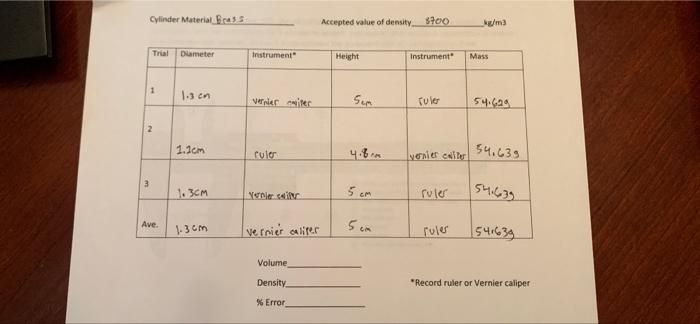 Cylinder Material Brass Accepted value of density 8700 kg/m3
Trial Diameter Instrument* Height Instrument* Mass
1 1.3 cm vernier caliper 5cm ruler 54.62g
2 1.2cm ruler 4.8cm vernier caliper 54.63g
3 1.3cm vernier caliper 5 cm ruler 54.63g
Ave. 1.3cm vernier caliper 5 cm ruler 54.63g
Volume
Density *Record ruler or Vernier caliper
% Error